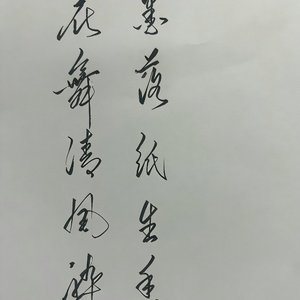 墨落纸生香
舞清风醉